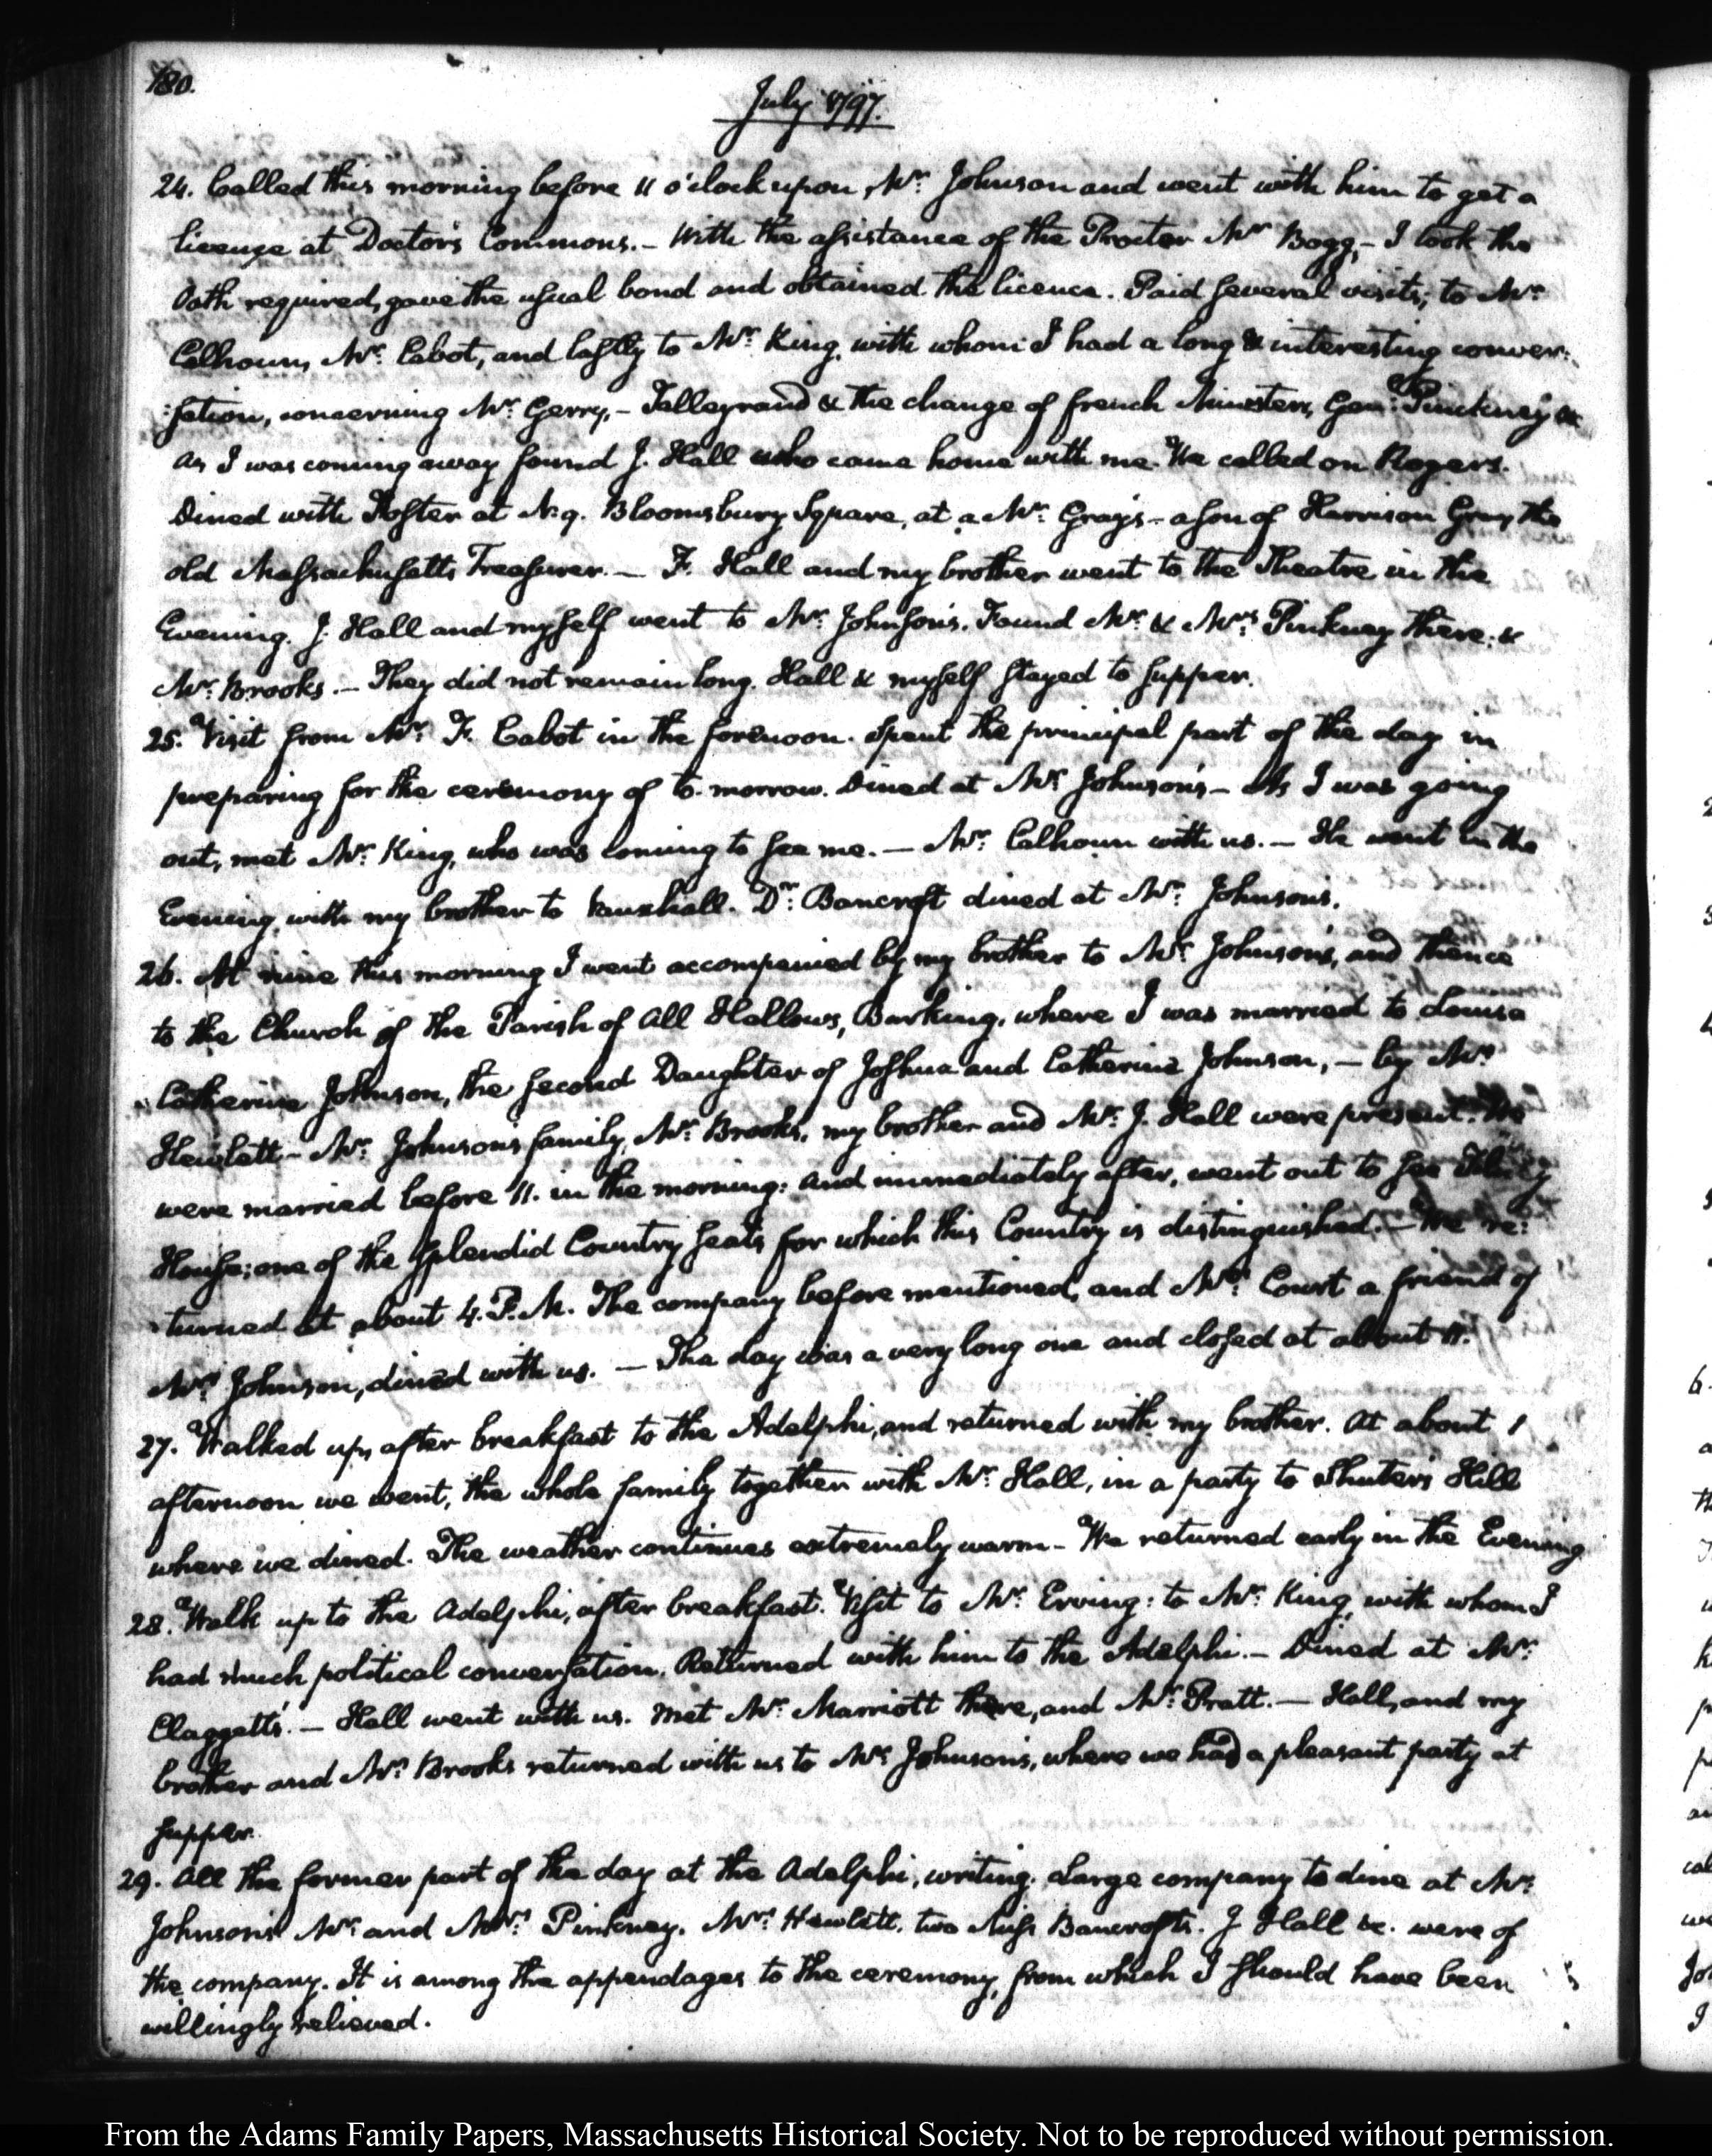 180.
July 1797.
24. Called this morning before 11 o'clock upon Mr: Johnson and went with him to get a
license at Doctor's Commons. – With the assistance of the Procter Mr Bogg, – I took the
Oath required, gave the usual bond and obtained the licence. Paid several visits; to Mr:
Calhoun, Mr: Cabot, and lastly to Mr: King, with whom I had a long & interesting conver:
:sation, concerning Mr: Gerry, – Talleyrand & the change of french Ministers, Genl: Pinckney &c
As I was coming away found J. Hall who came home with me. We called on Rogers.
Dined with Foster at N. 9. Bloomsbury Square, at a Mr: Gray's – a son of Harrison Gray the
old Massachusetts Treasurer. – F. Hall and my brother went to the Theatre in the
Evening. J. Hall and myself went to Mr: Johnson's. Found Mr: & Mrs: Pinkney there: &
Mr: Brooks. – They did not remain long. Hall & myself stayed to supper.
25. Visit from Mr: F. Cabot in the forenoon. Spent the principal part of the day in
preparing for the ceremony of to-morrow. Dined at Mr: Johnson's – As I was going
out, met Mr: King, who was coming to see me. – Mr: Calhoun with us. – He went in the
Evening, with my brother to Vauxhall. Dr: Bancroft dined at Mr: Johnson's.
26. At nine this morning I went accompanied by my brother to Mr: Johnson's, and thence
to the Church of the Parish of All Hallows, Barking, where I was married to Louisa
Catherine Johnson, the second Daughter of Joshua and Catherine Johnson, – by Mr:
Hewlett – Mr: Johnson's family, Mr: Brooks, my brother and Mr: J. Hall were present. We
were married before 11. in the morning: and immediately after, went out to see Tilney
House; one of the splendid Country seats for which this Country is distinguished. – We re:
:turned at about 4. P.M. The company before mentioned, and Mrs: Court a friend of
Mrs: Johnson, dined with us. – The day was a very long one and closed at about 11.
27. Walked up, after breakfast to the Adelphi, and returned with my brother. At about 1
afternoon we went, the whole family together with Mr: Hall, in a party to Shuter's Hill
where we dined. The weather continues extremely warm – We returned early in the Evening
28. Walk up to the Adelphi, after breakfast. Visit to Mr: Erving: to Mr: King, with whom I
had much political conversation. Returned with him to the Adelphi. – Dined at Mr:
Claggett's. – Hall went with us. Met Mr: Marriott there, and Mr: Pratt. – Hall, and my
brother and Mr: Brooks returned with us to Mr: Johnson's, where we had a pleasant party at
supper.
29. All the former part of the day at the Adelphi, writing. Large company to dine at Mr:
Johnson's Mr: and Mrs: Pinkney. Mrs: Hewlett, two Miss Bancroft's. J Hall &c. were of
the company. It is among the appendages to the ceremony, from which I should have been
willingly relieved.
From the Adams Family Papers, Massachusetts Historical Society. Not to be reproduced without permission.